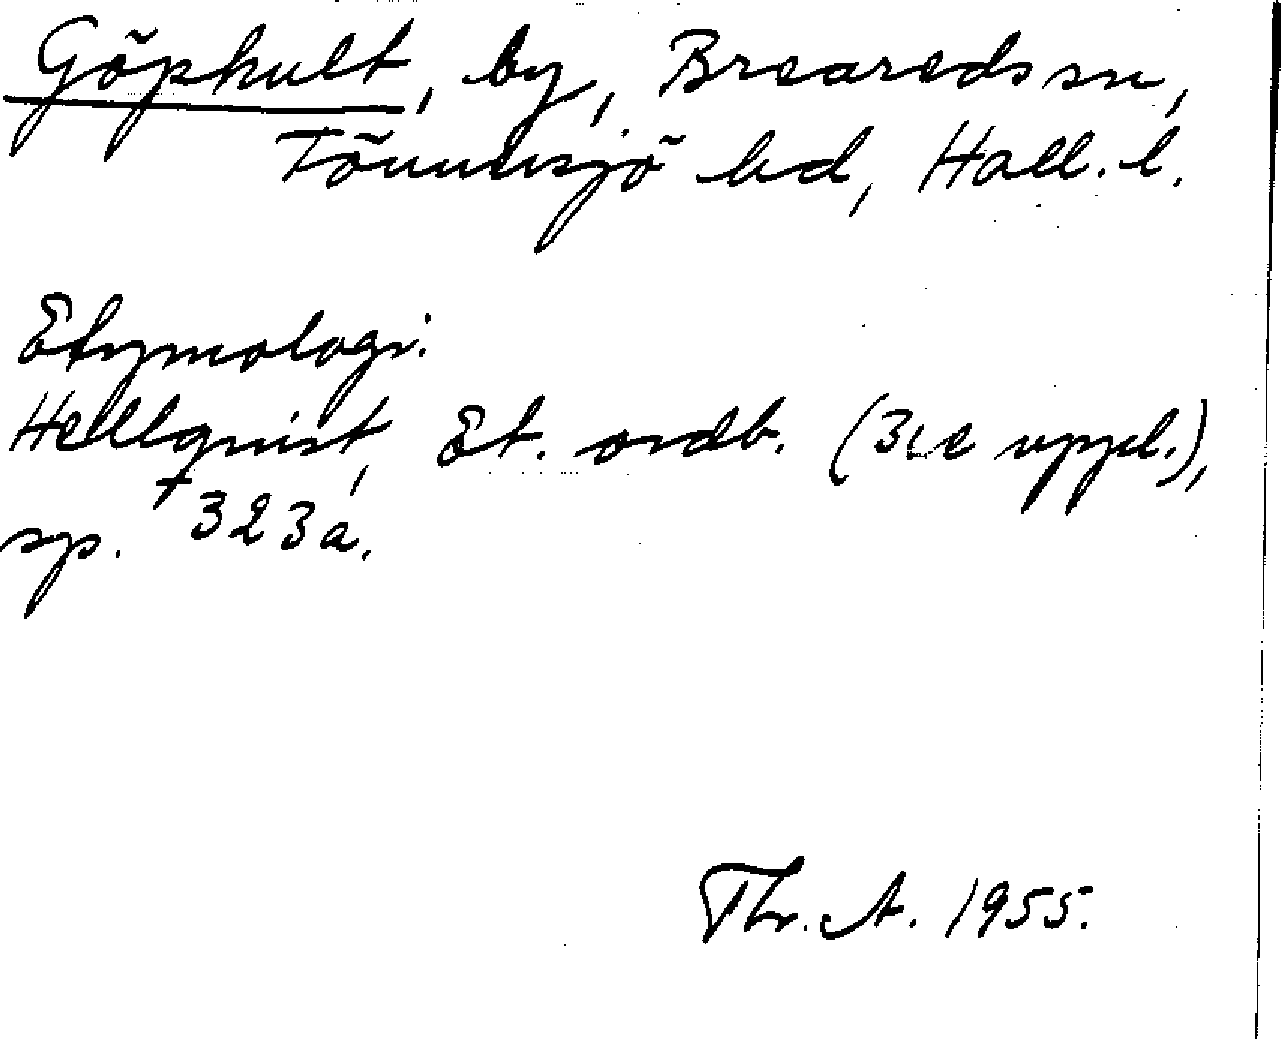 Göphult, by, Breareds sn,
Tönnersjö hd, Hall. l.
Etymologi:
Hellquist, Et. ordb. (3:e uppl.),
sp. 323a.
Thr. A. 1955.